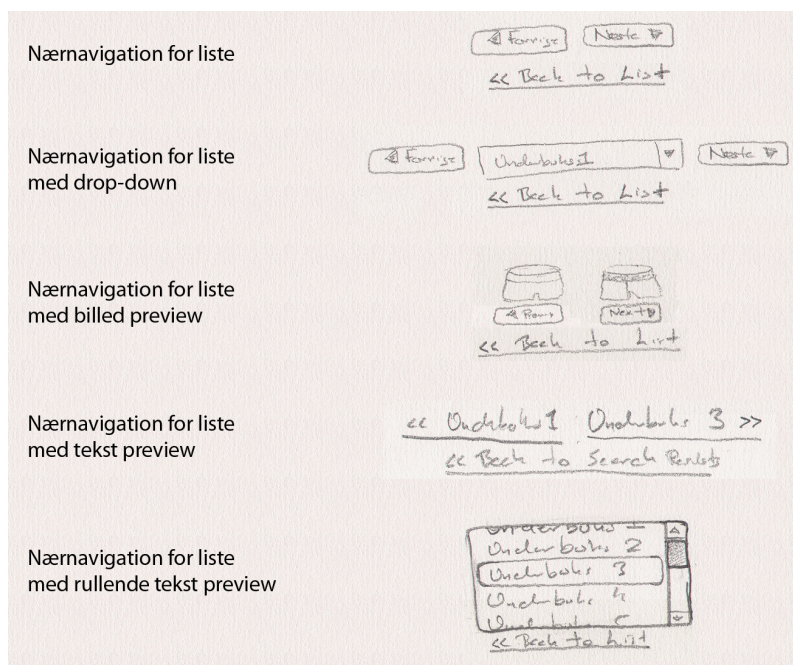 Nærnavigation for liste
Forrige Næste
<< Back to List
Nærnavigation for liste
med drop-down
Forrige Underbuks 1 Næste
<< Back to List
Nærnavigation for liste
med billed preview
Next
<< Back to List
Nærnavigation for liste
med tekst preview
<< Underbuks 1 Underbuks 3 >>
<< Back to Search Results
Nærnavigation for liste
med rullende tekst preview
Underbuks 1
Underbuks 2
Underbuks 3
Underbuks 4
Underbuks 5
<< Back to List